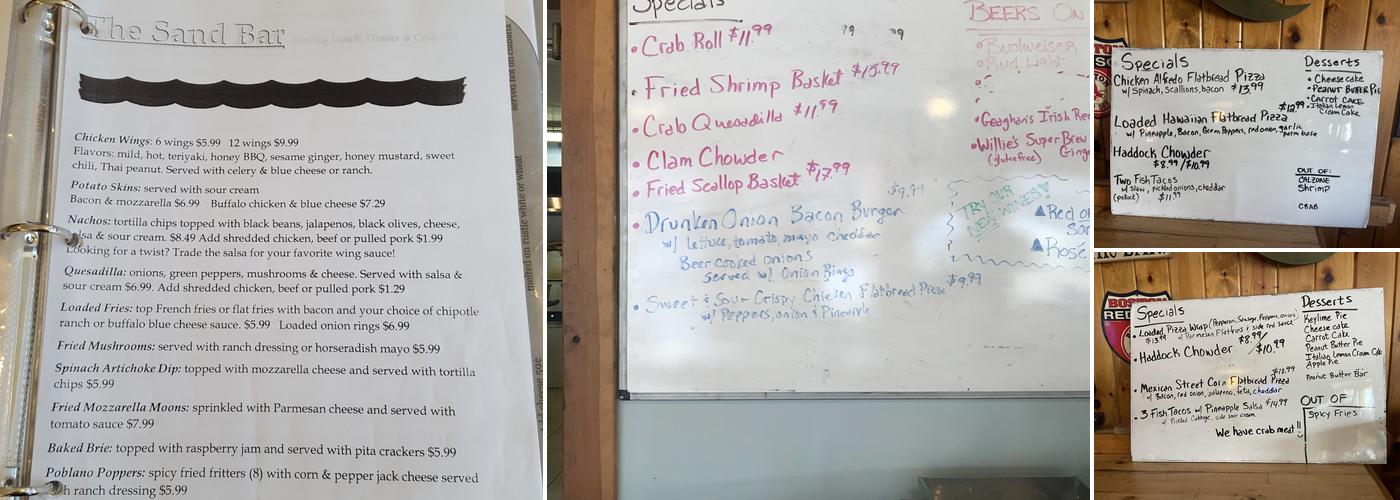 The Sand Bar Serving Lunch, Dinner &
Chicken Wings: 6 wings $5.99 12 wings $9.99
Flavors: mild, hot, teriyaki, honey BBQ, sesame ginger, honey mustard, sweet
chili, Thai peanut. Served with celery & blue cheese or ranch.
Potato Skins: served with sour cream
Bacon & mozzarella $6.99 Buffalo chicken & blue cheese $7.29
Nachos: tortilla chips topped with black beans, jalapenos, black olives, cheese,
salsa & sour cream. $8.49 Add shredded chicken, beef or pulled pork $1.99
Looking for a twist? Trade the salsa for your favorite wing sauce!
Quesadilla: onions, green peppers, mushrooms & cheese. Served with salsa &
sour cream $6.99. Add shredded chicken, beef or pulled pork $1.29
Loaded Fries: top French fries or flat fries with bacon and your choice of chipotle
ranch or buffalo blue cheese sauce. $5.99 Loaded onion rings $6.99
Fried Mushrooms: served with ranch dressing or horseradish mayo $5.99
Spinach Artichoke Dip: topped with mozzarella cheese and served with tortilla
chips $5.99
Fried Mozzarella Moons: sprinkled with Parmesan cheese and served with
tomato sauce $7.99
Baked Brie: topped with raspberry jam and served with pita crackers $5.99
Poblano Poppers: spicy fried fritters (8) with corn & pepper jack cheese served
with ranch dressing $5.99
Specials
• Crab Roll $11.99
• Fried Shrimp Basket
• Crab Quesadilla $11.99
• Clam Chowder
• Fried Scallop Basket $17.99
Drunken Onion Bacon Burger $9.99
w/ lettuce, tomato, mayo cheddar
Beer cooked onions
Served w/ Onion Rings
• Sweet & Sour Crispy Chicken Flatbread Pizza $9.99
w/ Peppers, onion & Pineapple
BEERS ON
• Budweiser
• Bud Light
• Geaghan's Irish Red
• Willie's Super Brew
(gluten free) Ging
TRY OUR
NEW WINES!
Red
Rosé
Specials
Chicken Alfredo Flatbread Pizza
w/ Spinach, scallions, bacon $13.99
Loaded Hawaiian Flatbread Pizza $12.99
w/ Pineapple, Bacon, Green Peppers, red onion, garlic
parm base
Haddock Chowder
$8.99/$10.99
Two Fish Tacos
w/ Slaw, pickled onions, cheddar
(pollock) $11.99
Desserts
• Cheesecake
• Peanut Butter Pie
• Carrot Cake
• Italian Lemon
Cream Cake
OUT OF:
CALZONE
Shrimp
CRAB
BOSTON
RED
Specials
• Loaded Pizza Wrap (Pepperoni, Sausage, Peppers, onions)
$13.99 w/ Parmesan Flatfries & side red sauce
• Haddock Chowder $8.99/
$10.99
• Mexican Street Corn Flatbread Pizza $13.99
w/ Bacon, red onion, jalapeno, feta, cheddar
• 3 Fish Tacos w/ Pineapple Salsa $14.99
w/ Pickled Cabbage, side sour cream
We have crab meat!!
Desserts
Keylime Pie
Cheesecake
Carrot Cake
Peanut Butter Pie
Italian Lemon Cream Cake
Apple Pie
Peanut Butter Bar
OUT OF
Spicy Fries